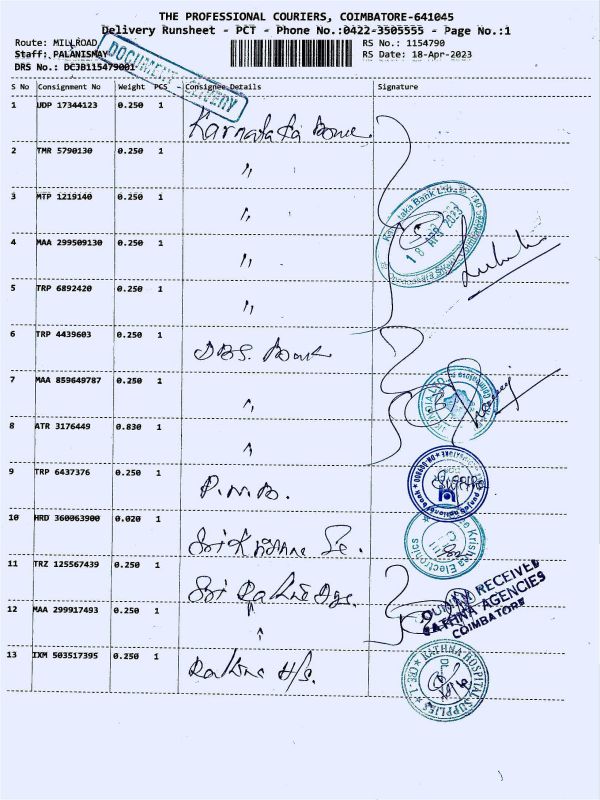 THE PROFESSIONAL COURIERS, COIMBATORE-641045
Delivery Runsheet - PCT - Phone No.:0422-3505555 - Page No.:1
Route: MILLROAD
RS No.: 1154790
Staff: PALANISMAY
RS Date: 18-Apr-2023
DRS No.: DCJB115479001
DOCUMENT DELIVERY
S No Consignment No Weight PCS Consignee Details Signature
1 UDP 17344123 0.250 1 Karnataka Bank
2 TMR 5790130 0.250 1 "
3 MTP 1219140 0.250 1 "
Karnataka Bank Ltd.
18 APR 2023
4 MAA 299509130 0.250 1 "
5 TRP 6892420 0.250 1 "
6 TRP 4439603 0.250 1 DBS. Bank
7 MAA 859649787 0.250 1 "
8 ATR 3176449 0.830 1 "
9 TRP 6437376 0.250 1 P.N.B.
punjab national bank
10 HRD 360963900 0.020 1 Sri Krishna
Krishna Electronics
11 TRZ 125567439 0.250 1 Sri Rathna Ags.
12 MAA 299917493 0.250 1 "
RECEIVED
RATHNA AGENCIES
COIMBATORE
13 IXM 503517395 0.250 1 Rathna H/s.
RATHNA HOSPITAL SUPPLIES
CBE-1